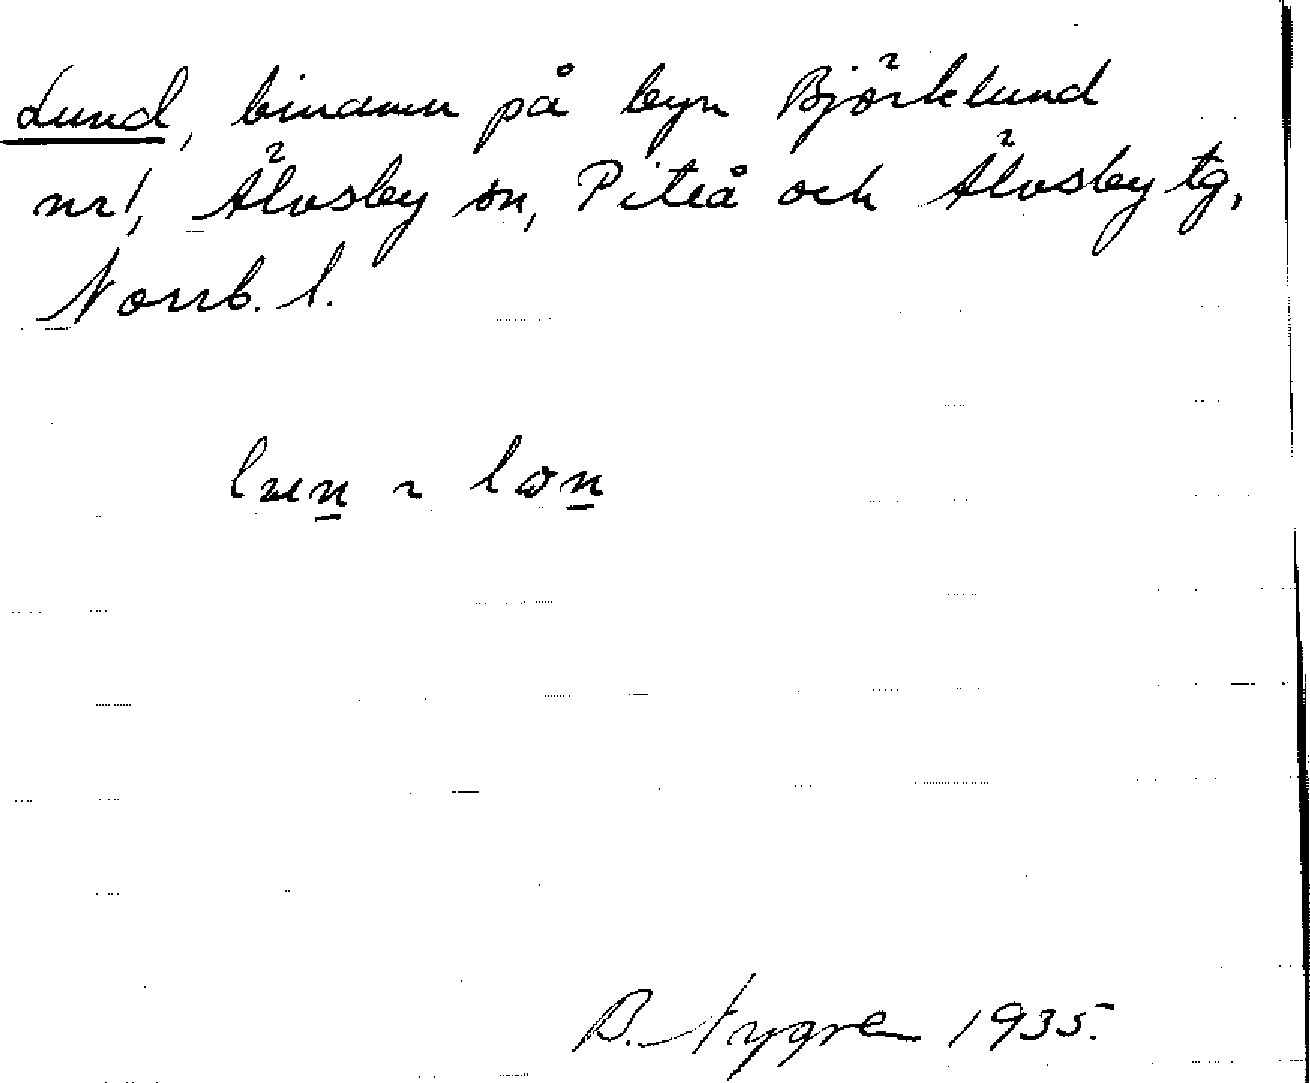 Lund, binamn på byn Björklund
nr 1, Älvsby sn, Piteå och Älvsby tg,
Norrb. l.
B. Nygren 1935.